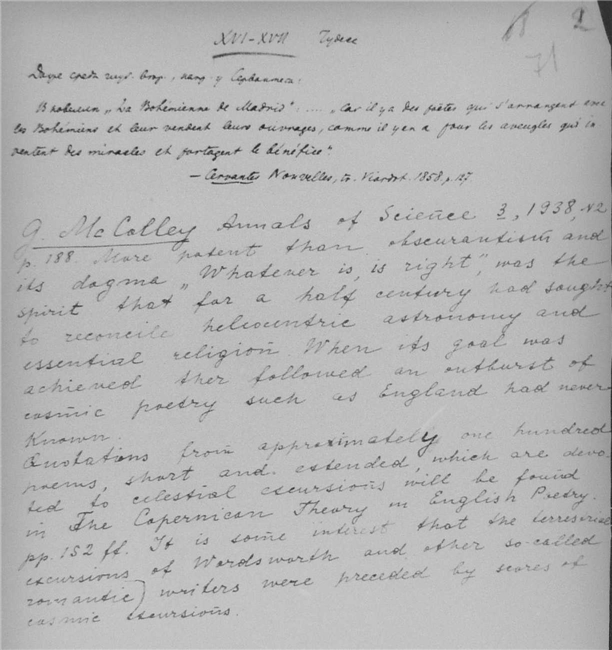 XVI–XVII
2
71
Даже среди
Вновелла „La Bohémienne de Madrid": .... „Car il ya des poètes qui s'arrangent avec
les Bohémiens et leur vendent leurs ouvrages, comme il y en a pour les aveugles qui in
ventent des miracles et partagent le bénéfice".
— Cervantes Nouvelles, tr. Viardot. 1858. p.
G. McColley Annals of Science 3, 1938, N2
p. 188. More potent than obscurantism and
its dogma „Whatever is, is right", was the
spirit that for a half century had sought
to reconcile heliocentric astronomy and
essential religion. When its goal was
achieved ther followed an outburst of
cosmic poetry such as England had never
known.
Quotations from approximately one hundred
poems, short and extended, which are devo-
ted to celestial excursions will be found
in The Copernican Theory in English Poetry.
pp. 152 ff. It is some interest that the terrestrial
excursions of Wordsworth and other so-called
romantic) writers were preceded by scores of
cosmic excursions.